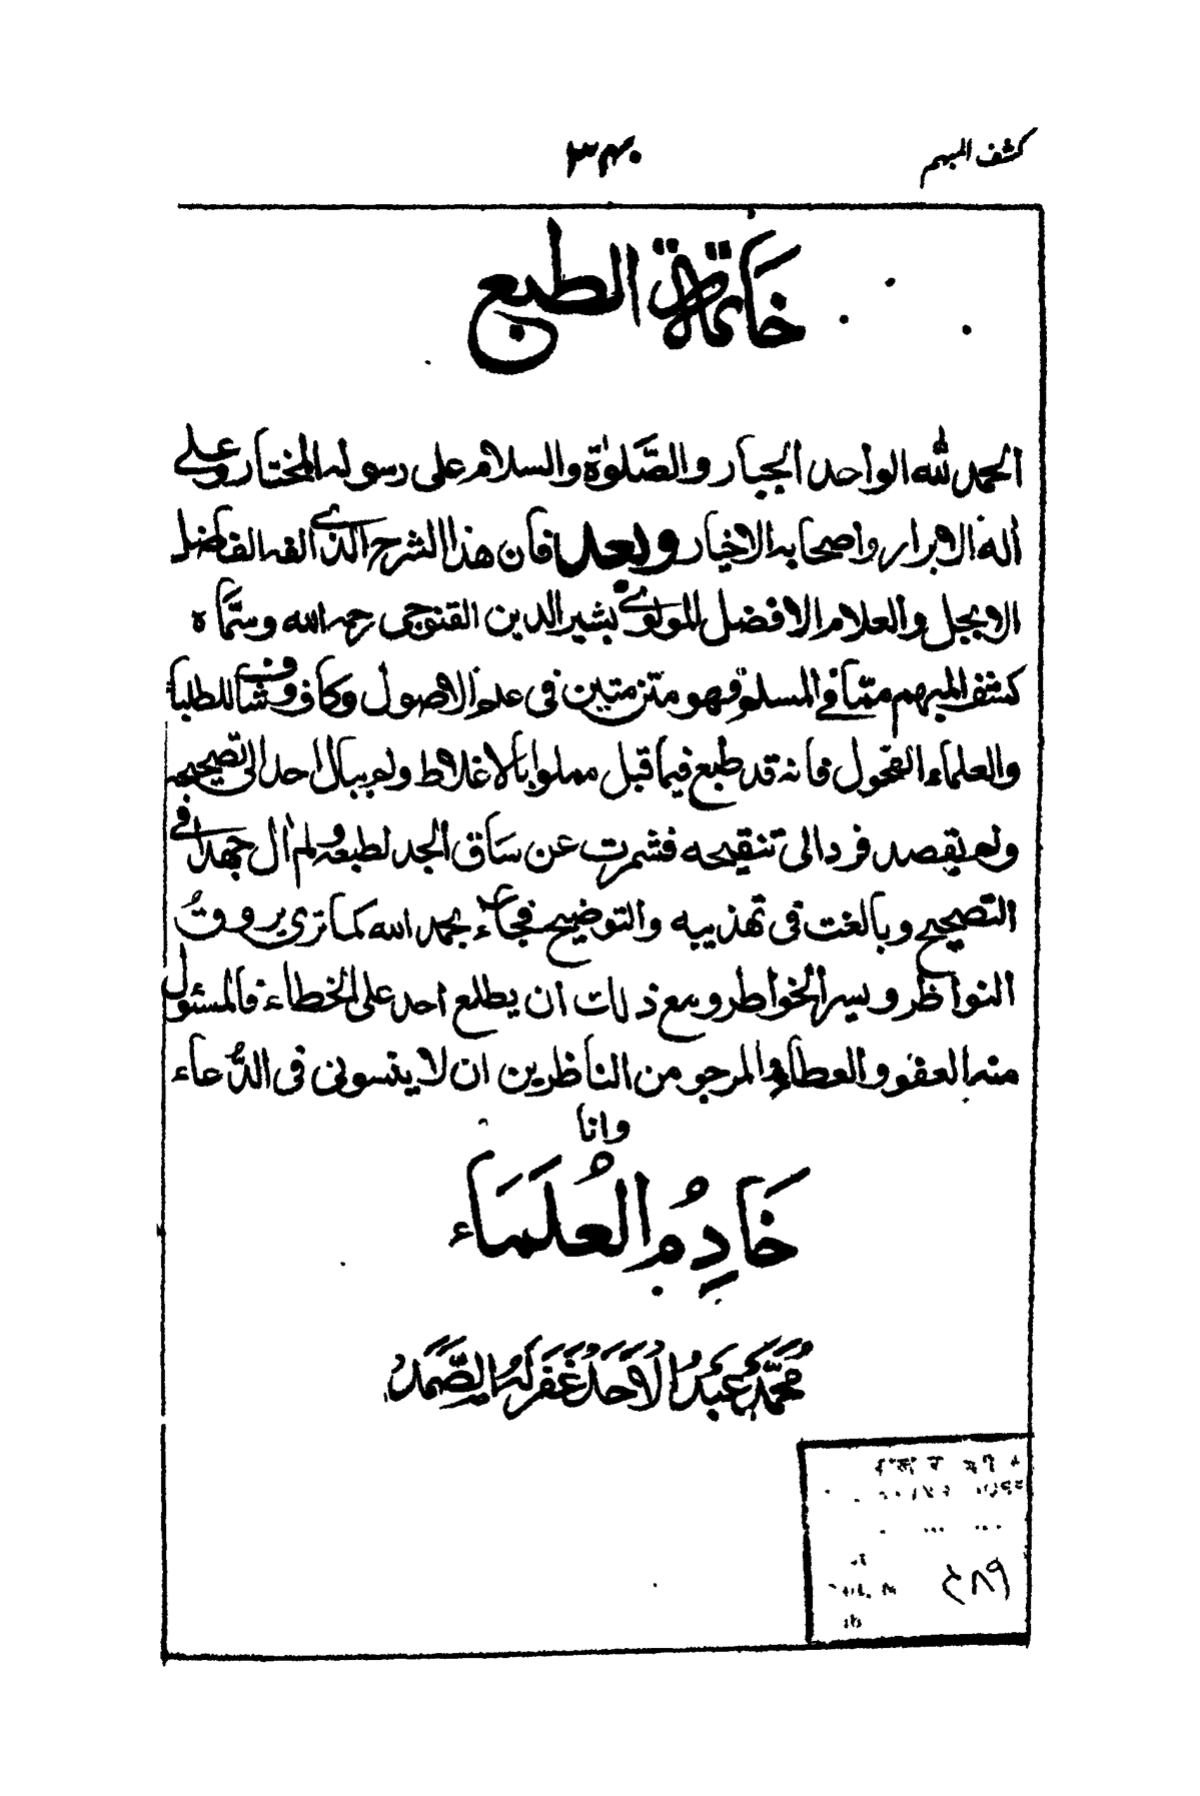 كشف المبهم
٣٤٠
خَاتمة الطبع
الحمد لله الواحد الجبار والصَّلوٰة والسلام على رسوله المختار وعلى
اٰله الابرار واصحابه الاخيار وبعد فان هذا الشرح الذى الفه الفاضل
الابجل والعلام الافضل المولوى بشير الدين القنوجى رحمه الله وسمَّاه
كشف المبهم ممّا فى المسلم فهو متن متين فى علم الاصول وكاف وشاف للطلباء
والعلماء الفحول فانه قد طبع فيما قبل مملوا بالاغلاط ولم يبال احد الى تصحيحه
ولم يقصد فرد الى تنقيحه فشمرت عن ساق الجد لطبعه ولم اٰل جهدا فى
التصحيح وبالغت فى تهذيبه والتوضيح فجاء بحمد الله كما ترى يروقُ
النواظر ويسر الخواطر ومع ذلك ان يطلع احد على الخطاء فالمسئول
منه العفو والعطاء والمرجو من الناظرين ان لا ينسونى فى الدُّعاء
وانا
خَادِمُ العُلَمَاء
مُحَمَّد عَبدُ الاَحَد غَفَرَ لَهُ الصَّمَدُ